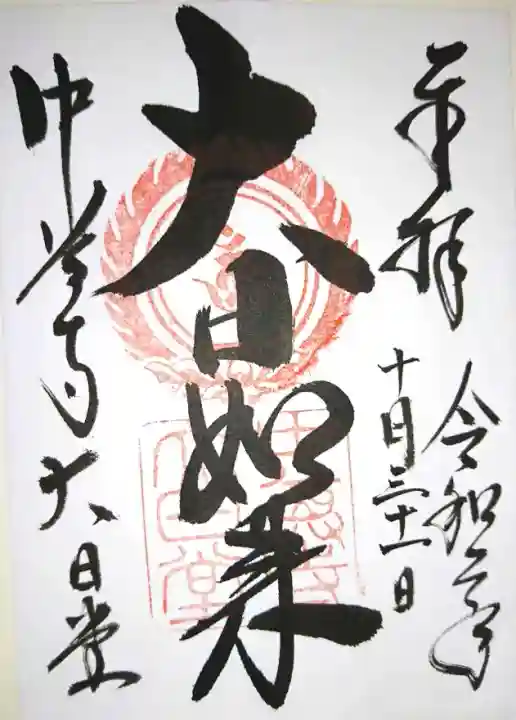 奉拝
令和二年
十月三十一日
大日如来
中尊寺大日堂